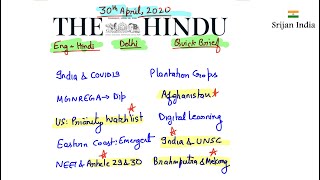 30th April, 2020
THE HINDU
Srijan India
Eng + Hindi Delhi Quick Brief
India & COVID19 Plantation Crops
MGNREGA → Dip Afghanistan
US: Priority Watchlist Digital Learning
Eastern Coast: Emergent India & UNSC
NEET & Article 29 & 30 Brahmaputra & Mekong